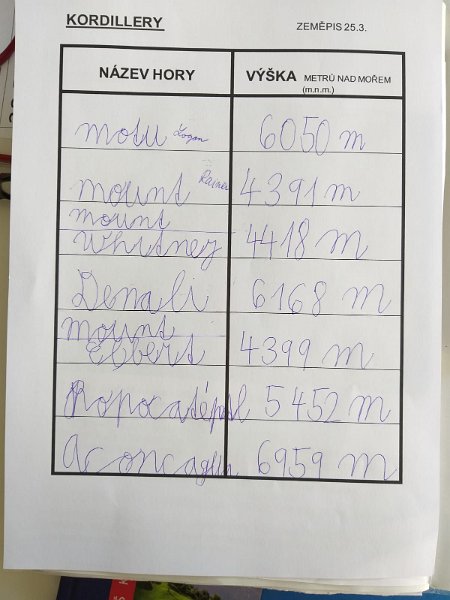 KORDILLERY
ZEMĚPIS 25.3.
NÁZEV HORY
VÝŠKA METRŮ NAD MOŘEM
(m.n.m.)
motu Logan 6050 m
mount Rainer 4391 m
mount
Whitney 4418 m
Denali 6168 m
mount
Elbert 4399 m
Popocatépetl 5452 m
Aconcagua 6959 m